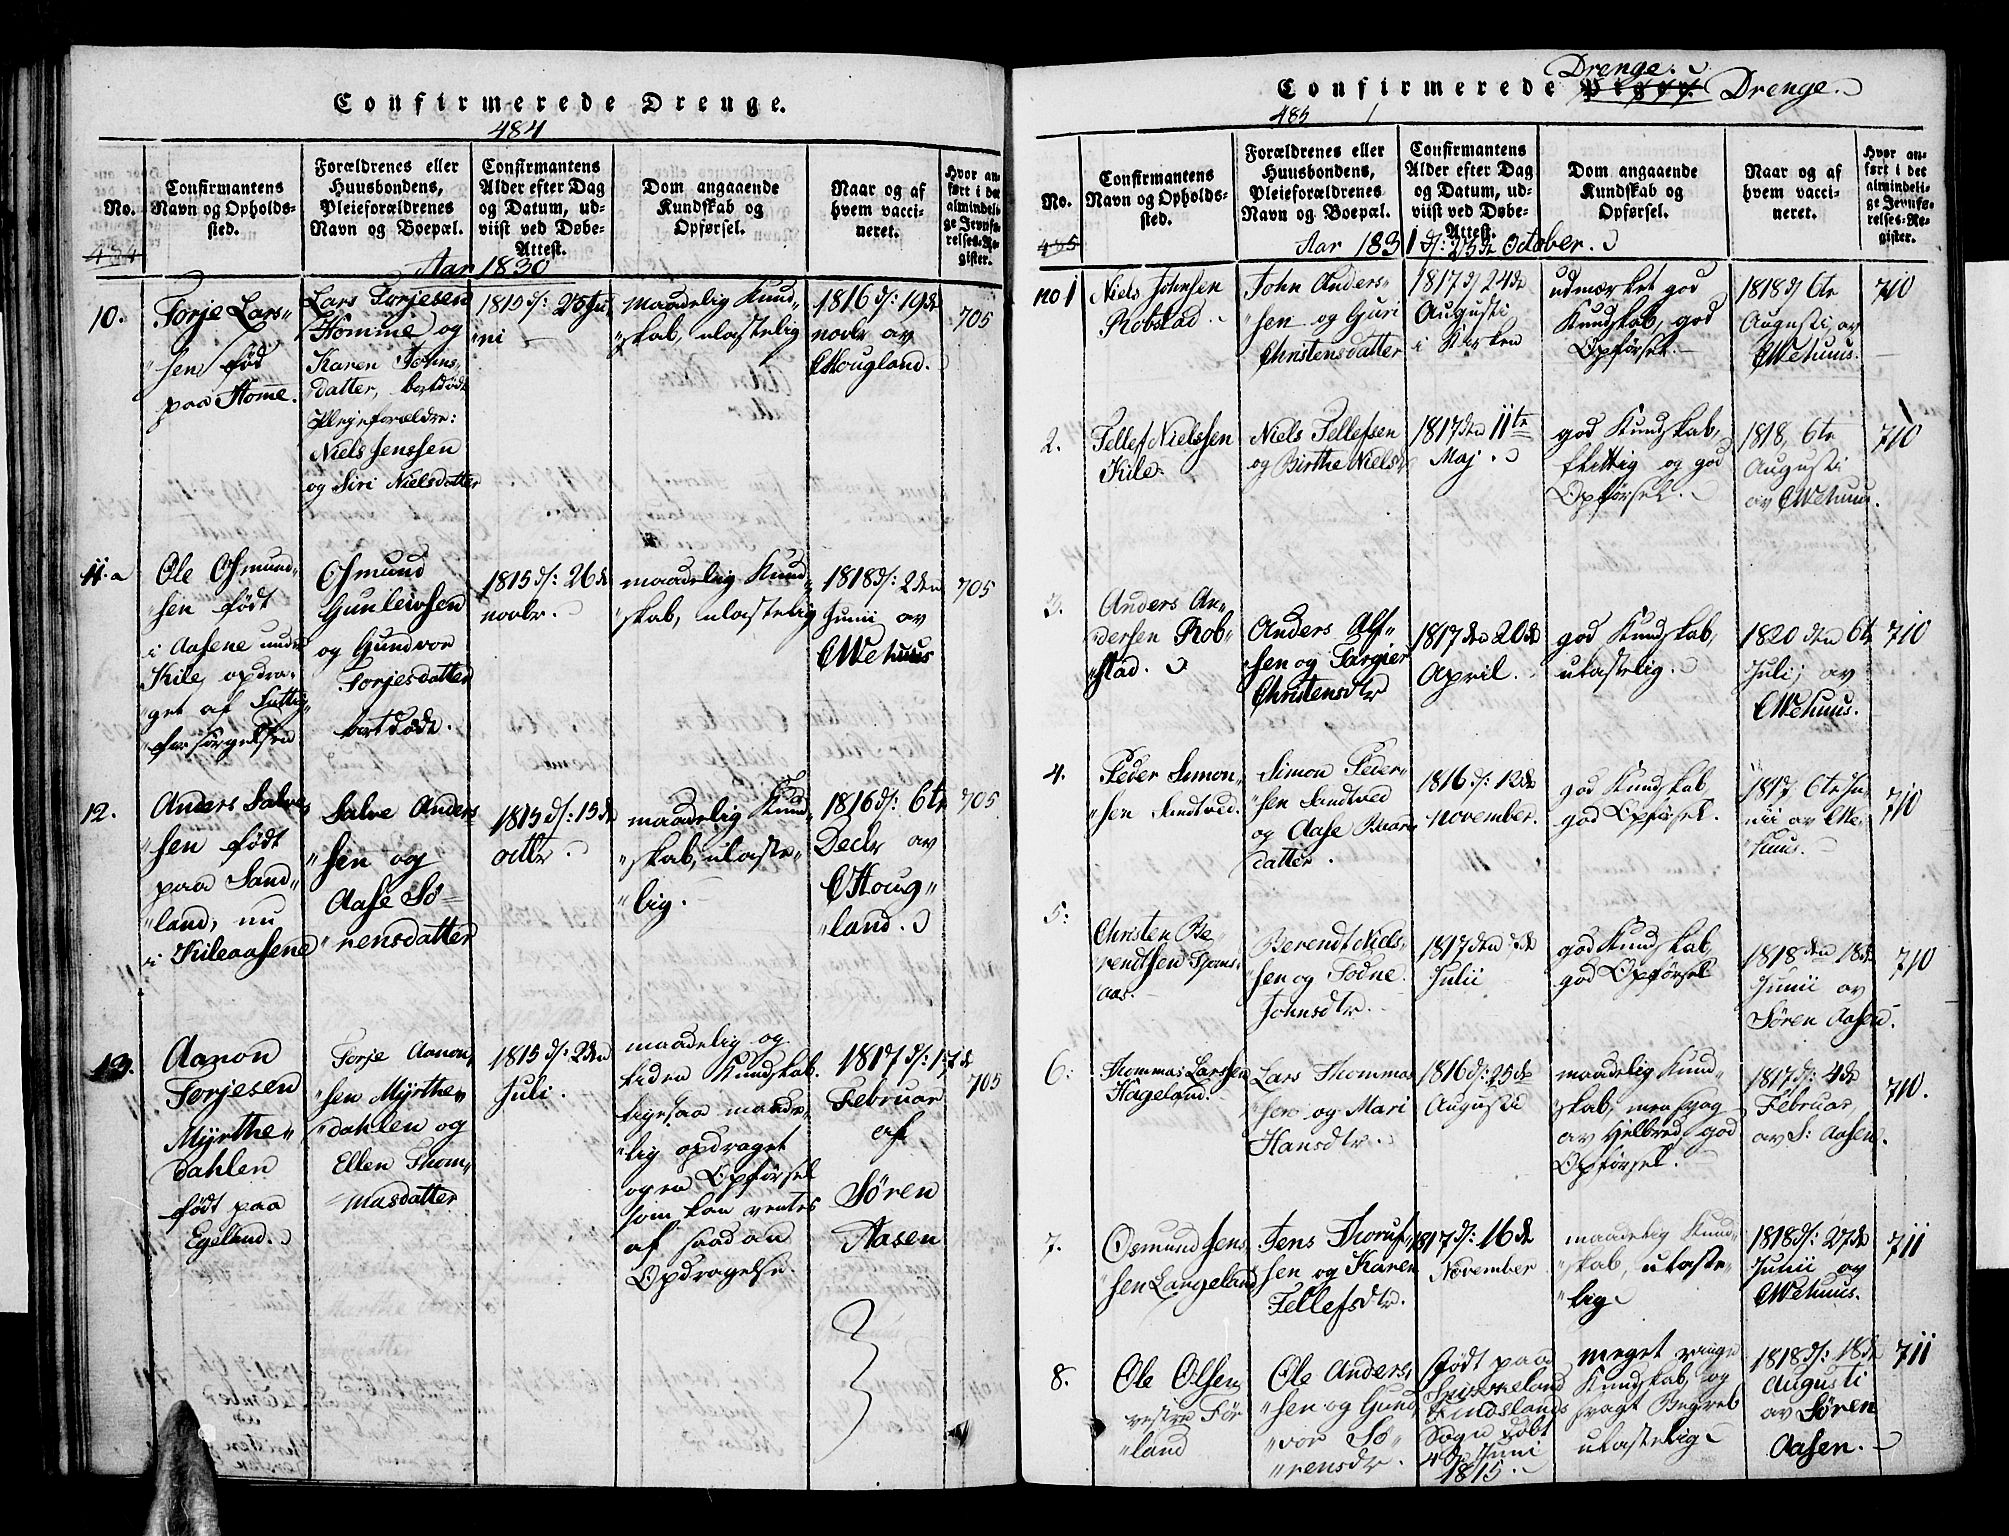 Confirmerede Drenge.
484
No.
Confirmantens
Navn og Opholds-
sted.
Forældrenes eller
Huusbondens,
Pleieforældrenes
Navn og Boepæl.
Confirmantens
Alder efter Dag
og Datum, ud-
viist ved Døbe-
Attest.
Dom angaaende
Kundskab og
Opførsel.
Naar og af
hvem vacci-
neret.
Hvor an-
ført i det
almindeli-
ge Jevnfø-
relses-Re-
gister.
484
Aar 1830
10.
Torje Lars-
sen, fød
paa Homme.
Lars Torjesen
Homme og
Karen Johns-
datter, bortdøde
Plejeforældre:
Niels Jenssen
og Siri Nielsdatter
1815 d: 25 Ju-
ni
maadelig Kund-
skab, ulastelig
1816 d: 19de
novbr av
CHougland.
705
11.
Ole Osmund-
sen født
i Aasene under
Kile, opdra-
get af Fattig-
forsørgelsen
Osmund
Gunleivsen
og Gundvor
Torjesdatter
bortdøde.
1815 d: 26de
novbr.
maadelig Kund-
skab, ulastelig
1818 d: 2den
Junii av
CWehuus
705
12.
Anders Salve-
sen født
paa Sand-
land, nu
i Kileaasene
Salve Anders-
sen og
Aase Sö-
rensdatter
1815 d: 15de
octbr.
maadelig Kund-
skab, ulaste-
lig.
1816 d: 6te
Decbr av
CHoug-
land.
705
13.
Aanon
Torjesen
Myrthe-
dahlen
født paa
Egeland.
Torje Aanon-
sen Myrthe-
dahlen og
Ellen Thom-
masdatter
1815 d: 2den
Juli.
maadelig og
liden Kundskab.
ligesaa maade-
lig opdraget
og en Opførsel
som kan ventes
af saadan
Opdragelse.
1817 d: 17de
Februar
af
Søren
Aasen
705
Confirmerede Drenge. Drenge.
485
No.
Confirmantens
Navn og Opholds-
sted.
Forældrenes eller
Huusbondens,
Pleieforældrenes
Navn og Boepæl.
Confirmantens
Alder efter Dag
og Datum, ud-
viist ved Døbe-
Attest.
Dom angaaende
Kundskab og
Opførsel.
Naar og af
hvem vacci-
neret.
Hvor an-
ført i det
almindeli-
ge Jevnfø-
relses-Re-
gister.
485
Aar 1831 d: 23de October.
no 1
Niels Johnsen
Robstad.
John Anders-
sen og Guri
Christensdatter
1817 d 24de
Augusti
i Kirken
udmerket god
Kundskab, god
Opførsel.
1818 d 6te
Augusti, av
CWehuus.
710
2.
Tellef Nielssen
Kile.
Niels Tellefsen
og Birthe Nielsdr
1817 den 11te
Maj.
god Kundskab,
flittig og god
Opførsel.
1818, 6te
Augusti
av CWehuus.
710
3.
Anders An-
dersen Rob-
stad.
Anders Alf-
sen og Targier
Christensdtr
1817 den 20de
April.
god Kundskab,
ulastelig.
1820 den 6te
Juli, av
CWehuus.
710
4.
Peder Simon-
sen Sandtved.
Simon Peder-
sen Sandtved
og Aase
datter.
1816 d: 12de
November.
god Kundskab,
god Opførsel.
1817 6te Ju-
nii av CWe-
huus.
710
5:
Christen Be-
rendtsen
aas.
Berendt Niels-
sen og Todne
Johnsdtr.
1817 den
Julii
god Kundskab,
god Opførsel
1818 den 18de
Junii av
Søren Aasen.
710
6:
Thommas Larssen
Hageland.
Lars Thommas-
sen og Mari
Hansdtr.
1816 d: 25de
Augusti
maadelig Kund-
skab, men svag
av Helbred, god
Opførsel.
1817 d: 4de
Februar,
av S: Aasen.
710.
7.
Osmund Jens-
sen Langeland
Jens Thoruf-
sen og Karen
Tellefsdtr.
1817 d: 16de
November
maadelig Kund-
skab, ulaste-
lig.
1818 d: 27de
Julii av
CWehuus.
711
8.
Ole Olsen
vestre Før-
land
Ole Anders-
sen og Gund-
vor Sö-
rensdr.
født paa
Sogn født
4de Juni
1815.
meget ringe
Kundskab, og
svagt Begreb
ulastelig
1818 d: 18de
Augusti
av Søren
Aasen.
711